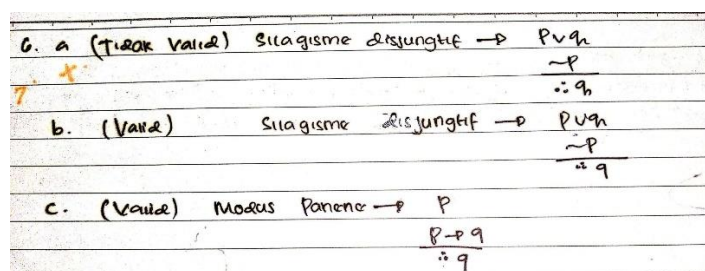 6. a (Tidak Valid) Silagisme disjungtif → p∨q
x ~p
7. ∴ q
b. (Valid) Silagisme disjungtif → p∨q
~p
∴ q
c. (Valid) Modus Panenc → p
p→q
∴ q